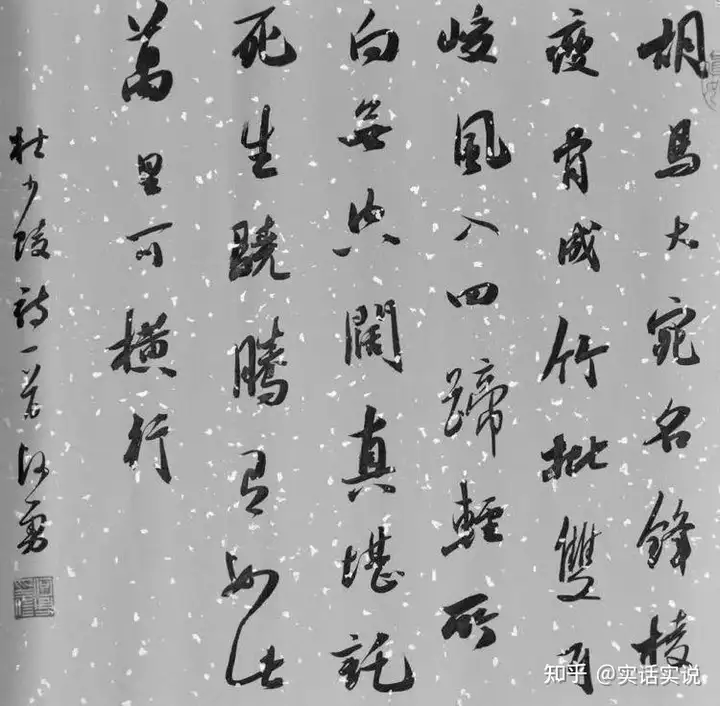 胡馬大宛名鋒棱
瘦骨成竹批雙耳
峻風入四蹄輕所
向無空闊真堪託
死生驍騰有如此
萬里可橫行
杜少陵詩一首
知乎 @实话实说